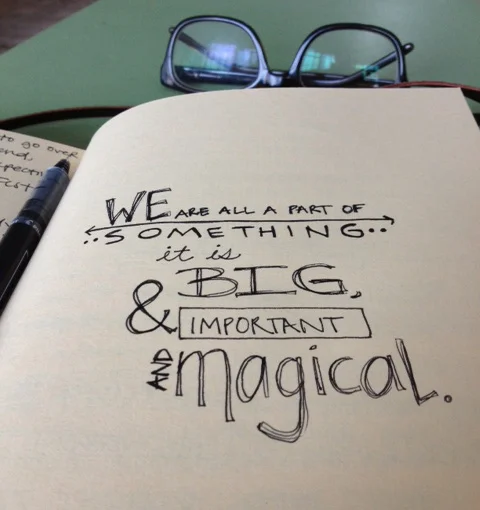 to go over
WE ARE ALL A PART OF
SOMETHING
it is
BIG,
& IMPORTANT
AND magical.